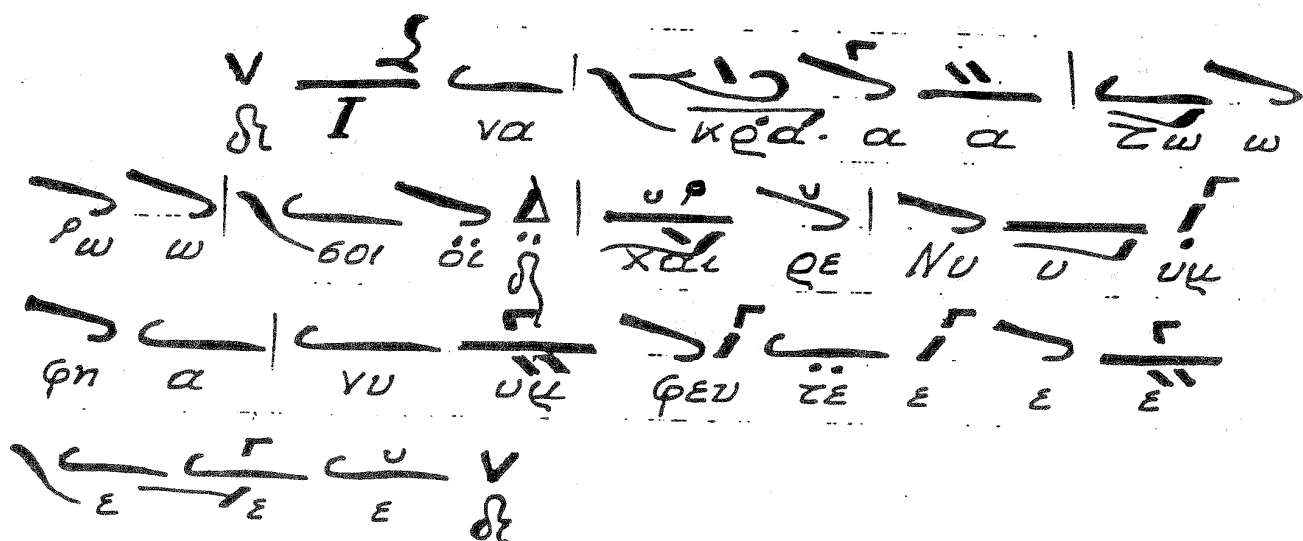 δι Ι να κρα. α α τω ω
ρω ω σοι οϊ δ χαι ρε Νυ υ υμ
φη α νυ υμ φευ τε ε ε ε
ε ε ε δι